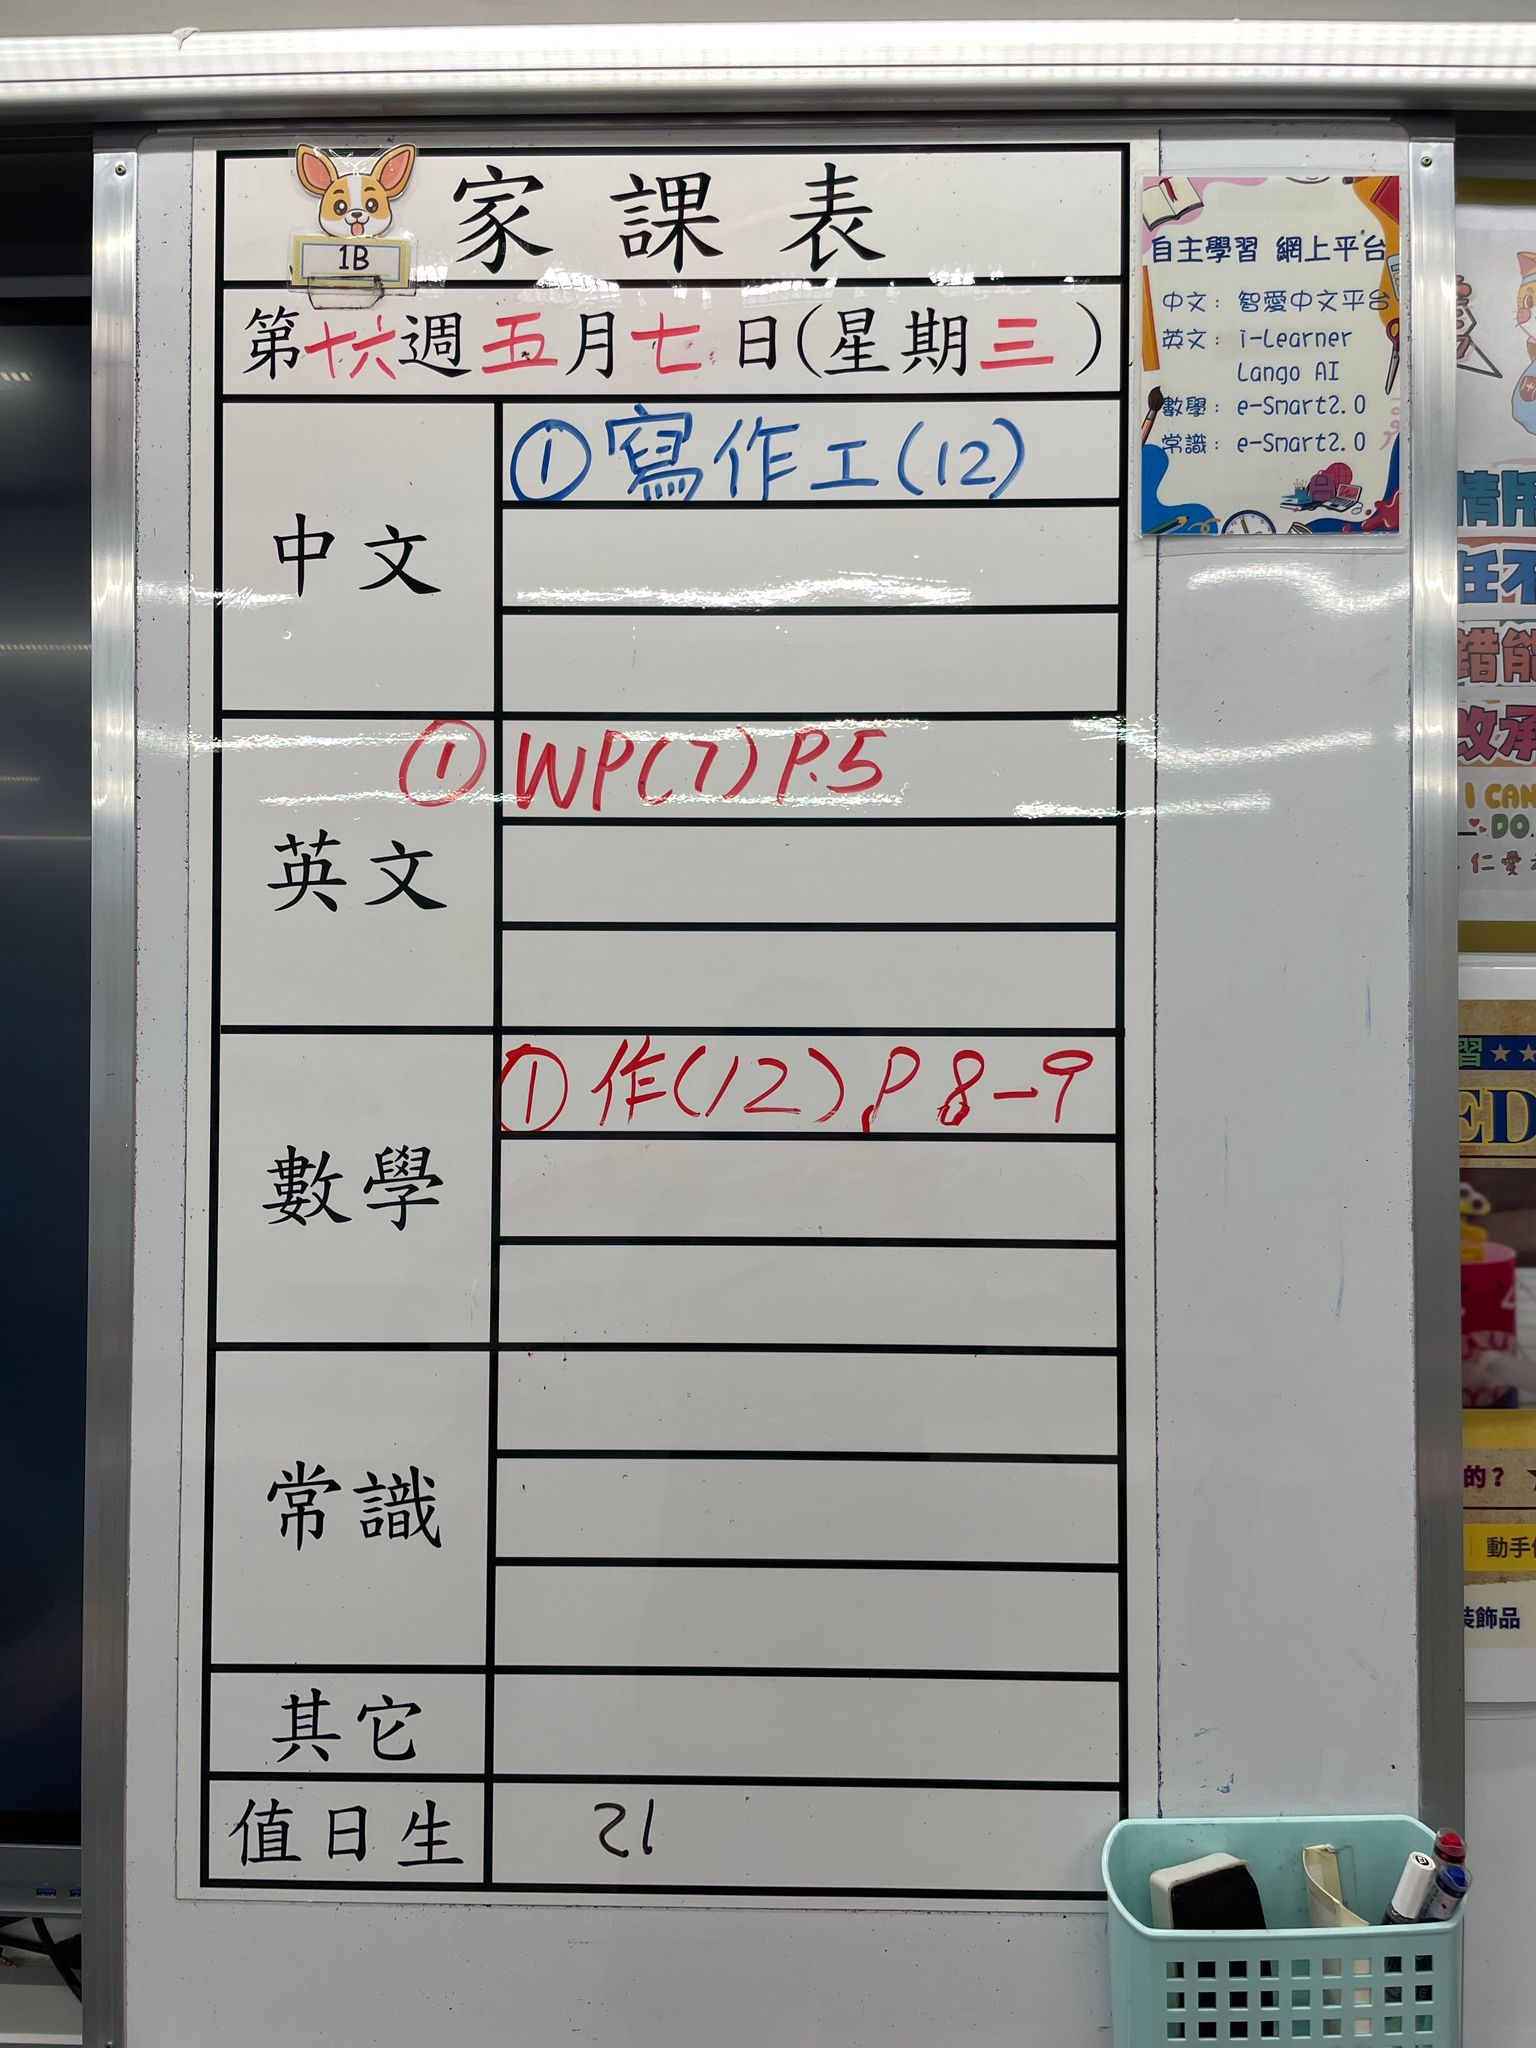 家課表
1B
第十六週五月七日(星期三)
中文
①寫作工(12)
英文
①WP(7)P.5
數學
①作(12),P 8-9
常識
其它
值日生
21
自主學習 網上平台
中文: 智愛中文平台
英文: i-Learner
Lango AI
數學: e-Smart2.0
常識: e-Smart2.0
I CAN
DO
仁愛
習
ED
的?
動手
裝飾品